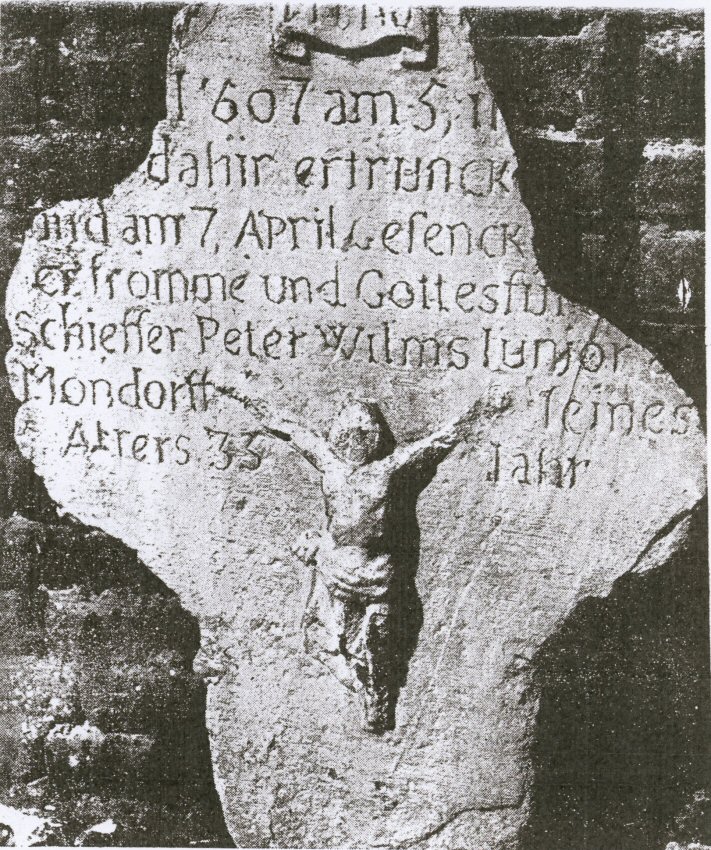 1607 am 5,
dahir ertrunck
und am 7, April gesenck
er fromme und Gottesfur
Schieffer Peter Wilms Iunior
Mondorff seines
Alters 35 Jahr